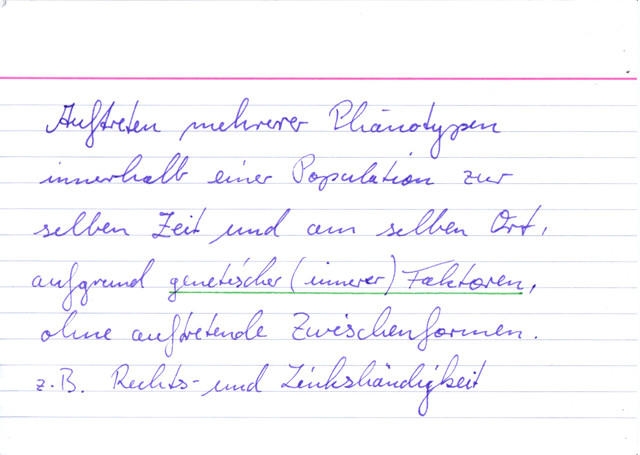 Auftreten mehrerer Phänotypen
innerhalb einer Population zur
selben Zeit und am selben Ort,
aufgrund genetischer (innerer) Faktoren,
ohne auftretende Zwischenformen.
z.B. Rechts- und Linkshändigkeit